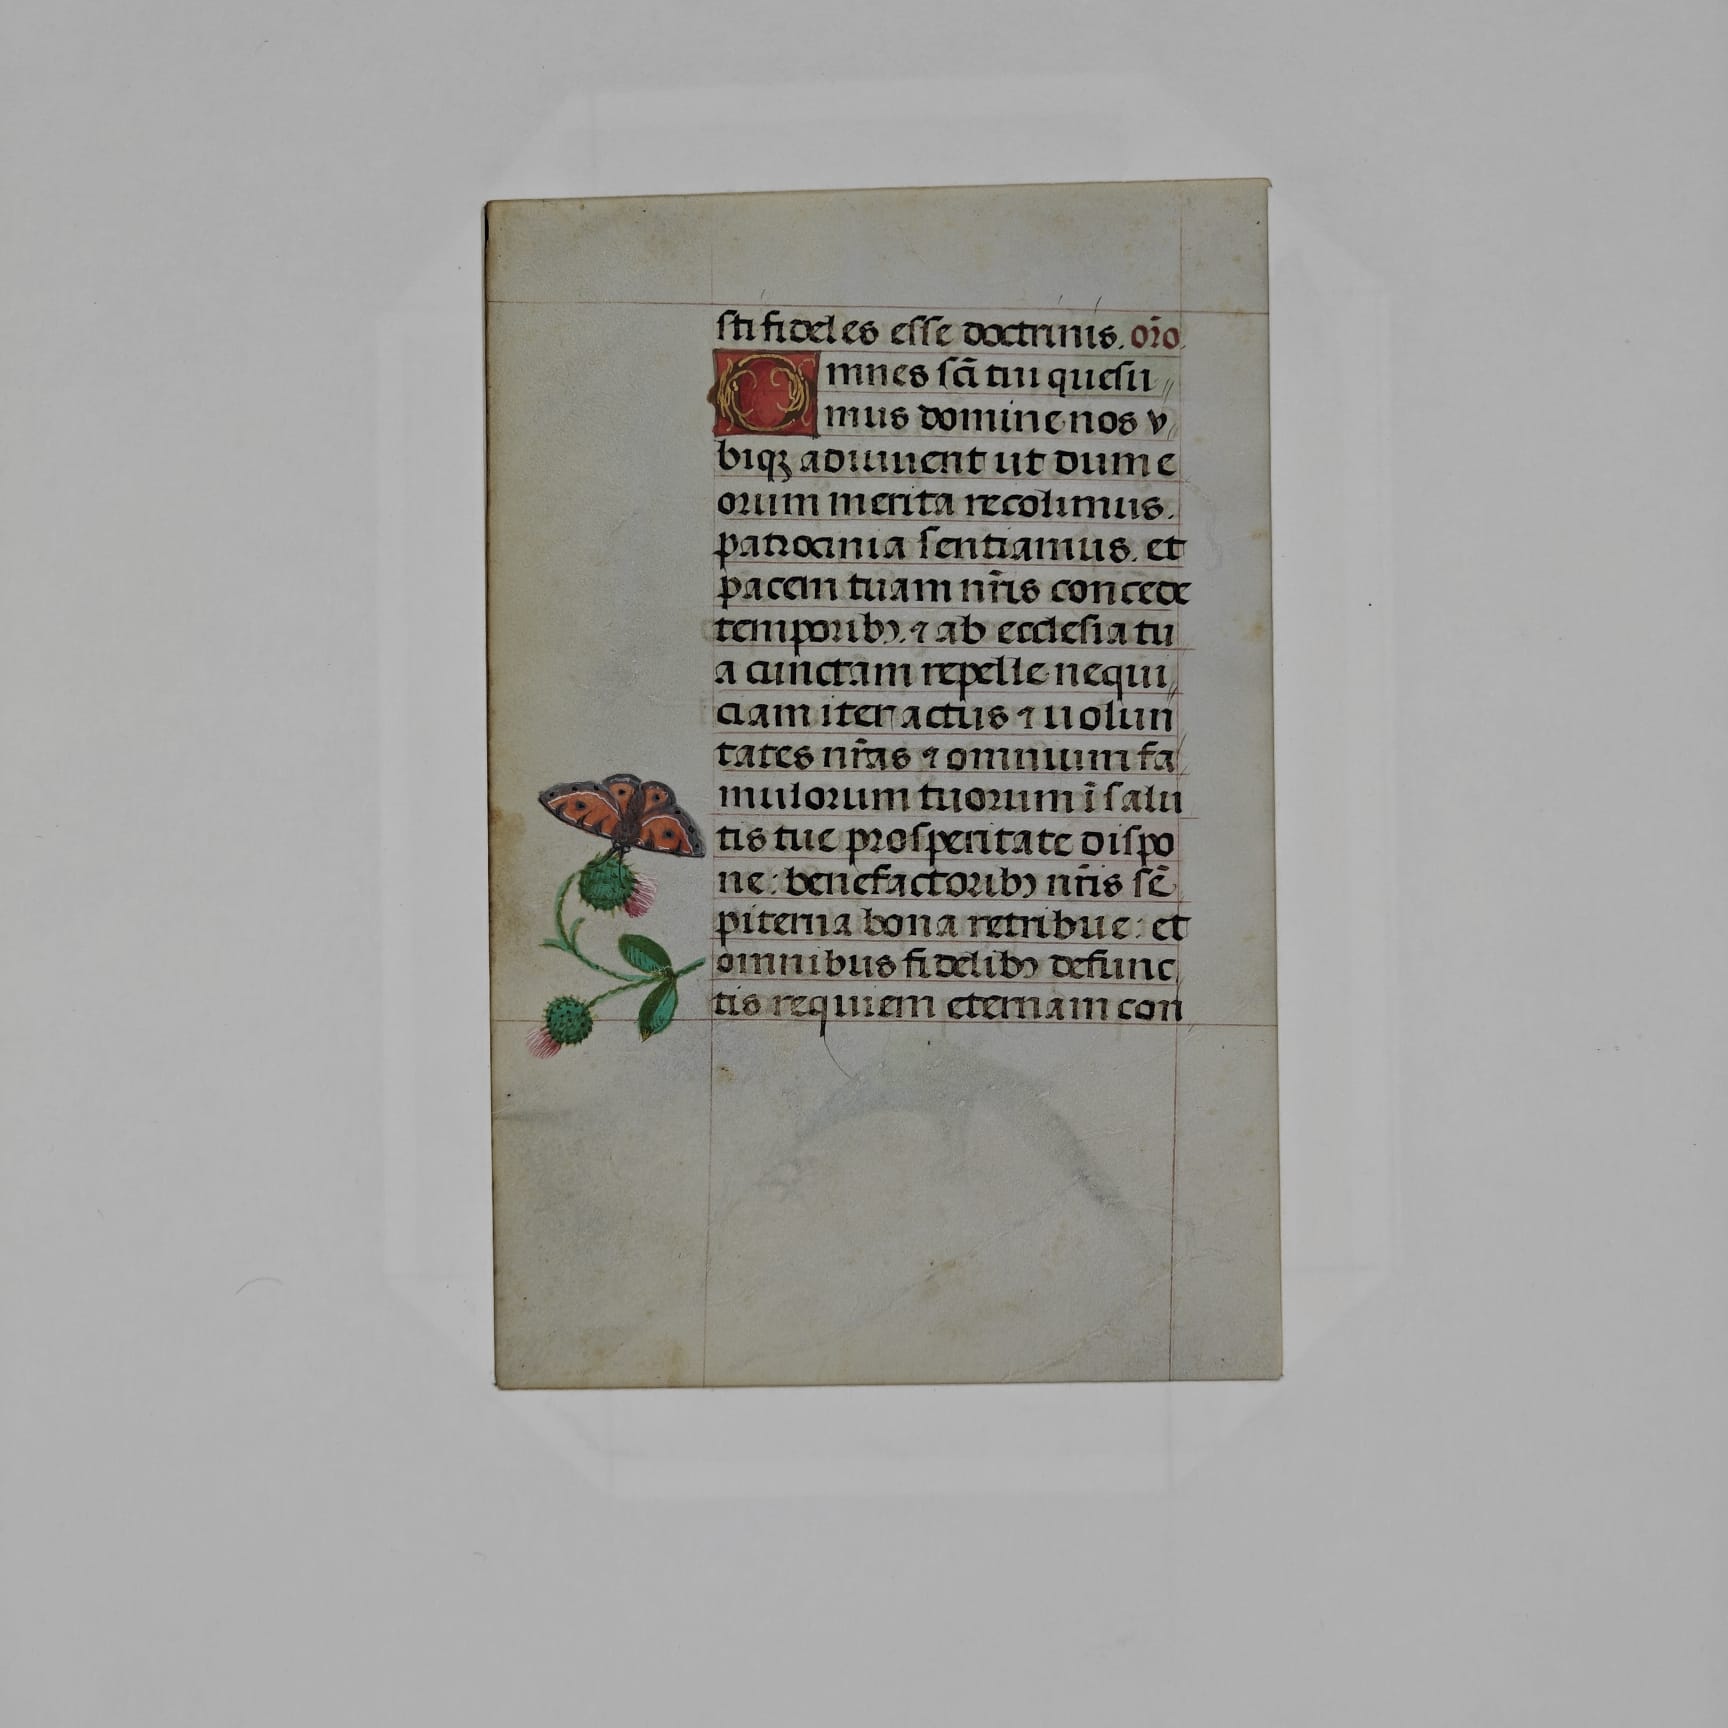 sti fideles esse doctrinis. or̄o
Omnes sc̄i tui quesu„
mus domine nos v
biqꝫ adiuuent ut dum e
orum merita recolimus.
patrocinia sentiamus. et
pacem tuam nr̄is concede
temporibꝰ. ⁊ ab ecclesia tu
a cunctam repelle nequi„
ciam iter actus ⁊ uolun
tates nr̄as ⁊ omnium fa
mulorum tuorum ī salu
tis tue prosperitate dispo
ne: benefactoribꝰ nr̄is sē
piterna bona retribue: et
omnibus fidelibꝰ defunc
tis requiem eternam con